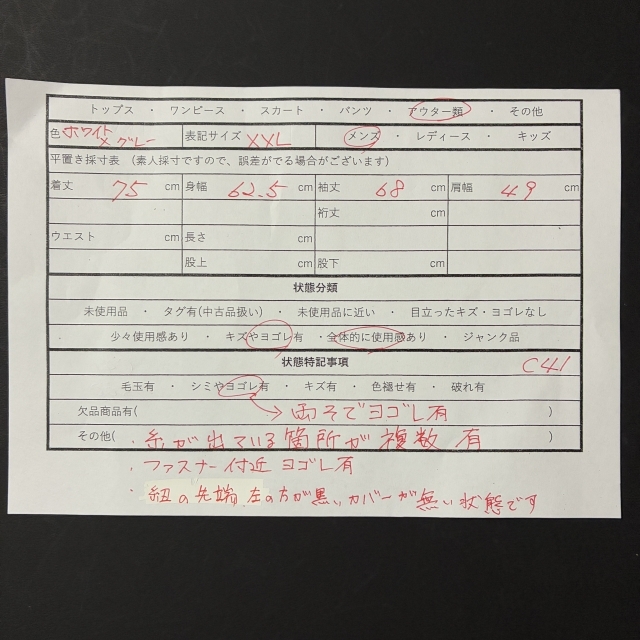 トップス ・ ワンピース ・ スカート ・ パンツ ・ アウター類 ・ その他
色 ホワイト×グレー 表記サイズ XXL メンズ ・ レディース ・ キッズ
平置き採寸表 （素人採寸ですので、誤差がでる場合がございます）
着丈 75 cm 身幅 62.5 cm 袖丈 68 cm 肩幅 49 cm
裄丈 cm
ウエスト cm 長さ cm
股上 cm 股下 cm
状態分類
未使用品 ・ タグ有(中古品扱い) ・ 未使用品に近い ・ 目立ったキズ・ヨゴレなし
少々使用感あり ・ キズやヨゴレ有 ・ 全体的に使用感あり ・ ジャンク品
状態特記事項 C41
毛玉有 ・ シミやヨゴレ有 ・ キズ有 ・ 色褪せ有 ・ 破れ有
欠品商品有( 両そでヨゴレ有 )
その他( ・糸が出ている箇所が複数有 )
・ファスナー付近 ヨゴレ有
・紐の先端 左の方が黒いカバーが無い状態です